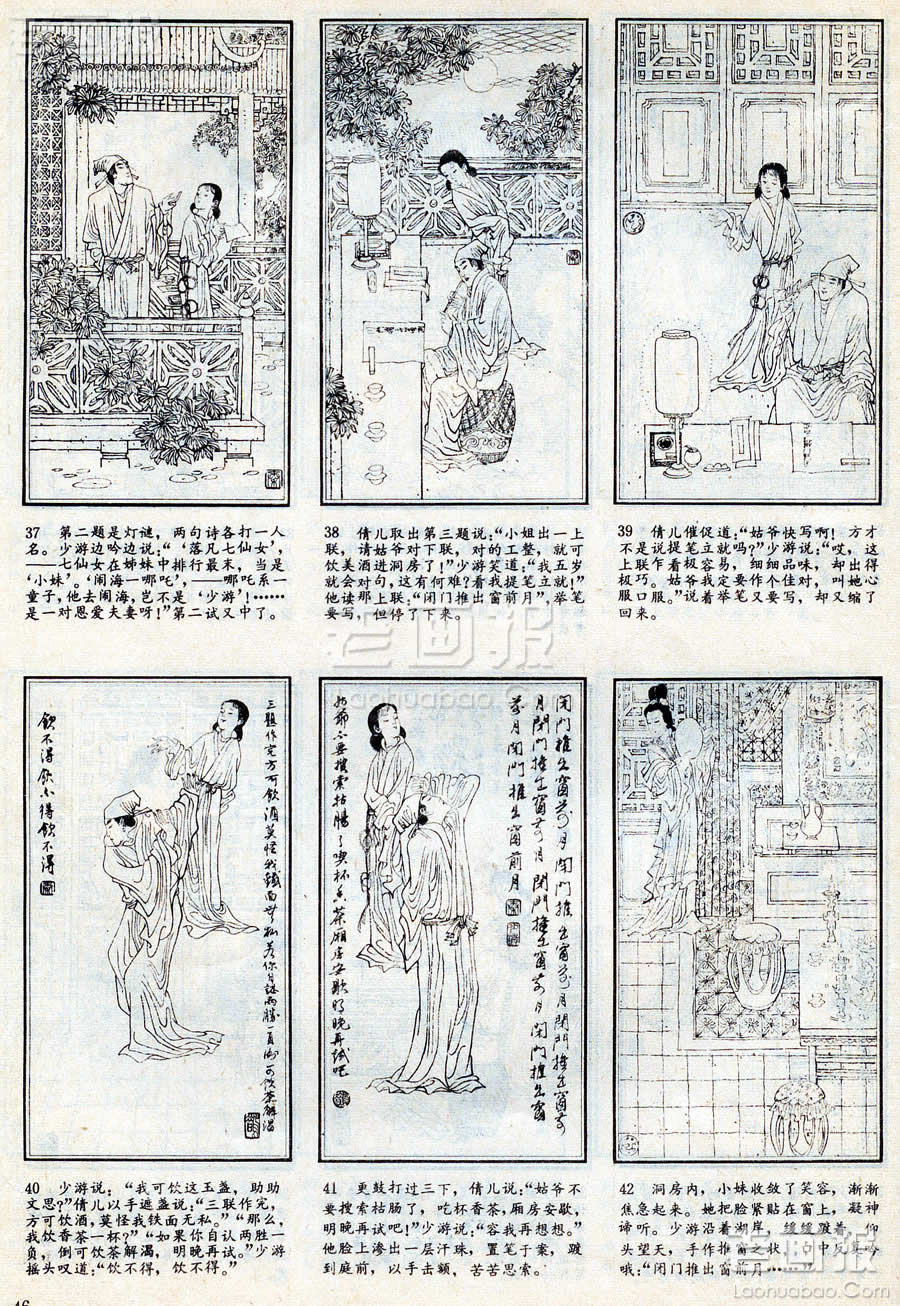 老画报
37 第二题是灯谜，两句诗各打一人
名。少游边吟边说：“‘落凡七仙女’，
——七仙女在姊妹中排行最末，当是
‘小妹’。‘闹海一哪吒’，——哪吒系一
童子，他去闹海，岂不是‘少游’！……
是一对恩爱夫妻呀！”第二试又中了。
38 倩儿取出第三题说：“小姐出一上
联，请姑爷对下联，对的工整，就可
饮美酒进洞房了！”少游笑道：“我五岁
就会对句，这有何难？看我提笔立就！”
他读那上联：“闭门推出窗前月”，举笔
要写，但停了下来。
39 倩儿催促道：“姑爷快写啊！方才
不是说提笔立就吗？”少游说：“哎，这
上联乍看极容易，细细品味，却出得
极巧。姑爷我定要作个佳对，叫她心
服口服。”说着举笔又要写，却又缩了
回来。
老画报
Laohuabao.Com
三题作完方可饮酒莫怪我铁面无私若你自认两胜一负倒可饮茶解渴
饮不得饮不得饮不得
闭门推出窗前月闭门推出窗前
月闭门推出窗前月闭门推出窗前月闭门推出窗
前月闭门推出窗前月
姑爷不要搜索枯肠了喫杯香茶厢房安歇明晚再试吧
40 少游说：“我可饮这玉盏，助助
文思？”倩儿以手遮盏说：“三联作完，
方可饮酒，莫怪我铁面无私。”“那么，
我饮香茶一杯？”“如果你自认两胜一
负，倒可饮茶解渴，明晚再试。”少游
摇头叹道：“饮不得，饮不得。”
41 更鼓打过三下，倩儿说：“姑爷不
要搜索枯肠了，吃杯香茶，厢房安歇，
明晚再试吧！”少游说：“容我再想想。”
他脸上渗出一层汗珠，置笔于案，踱
到庭前，以手击额，苦苦思索。
42 洞房内，小妹收敛了笑容，渐渐
焦急起来。她把脸紧贴在窗上，凝神
谛听。少游沿着湖岸，缓缓踱着，仰
头望天，手作推窗之状，口中反复吟
哦：“闭门推出窗前月……”
老画报
Laohuabao.Com
46